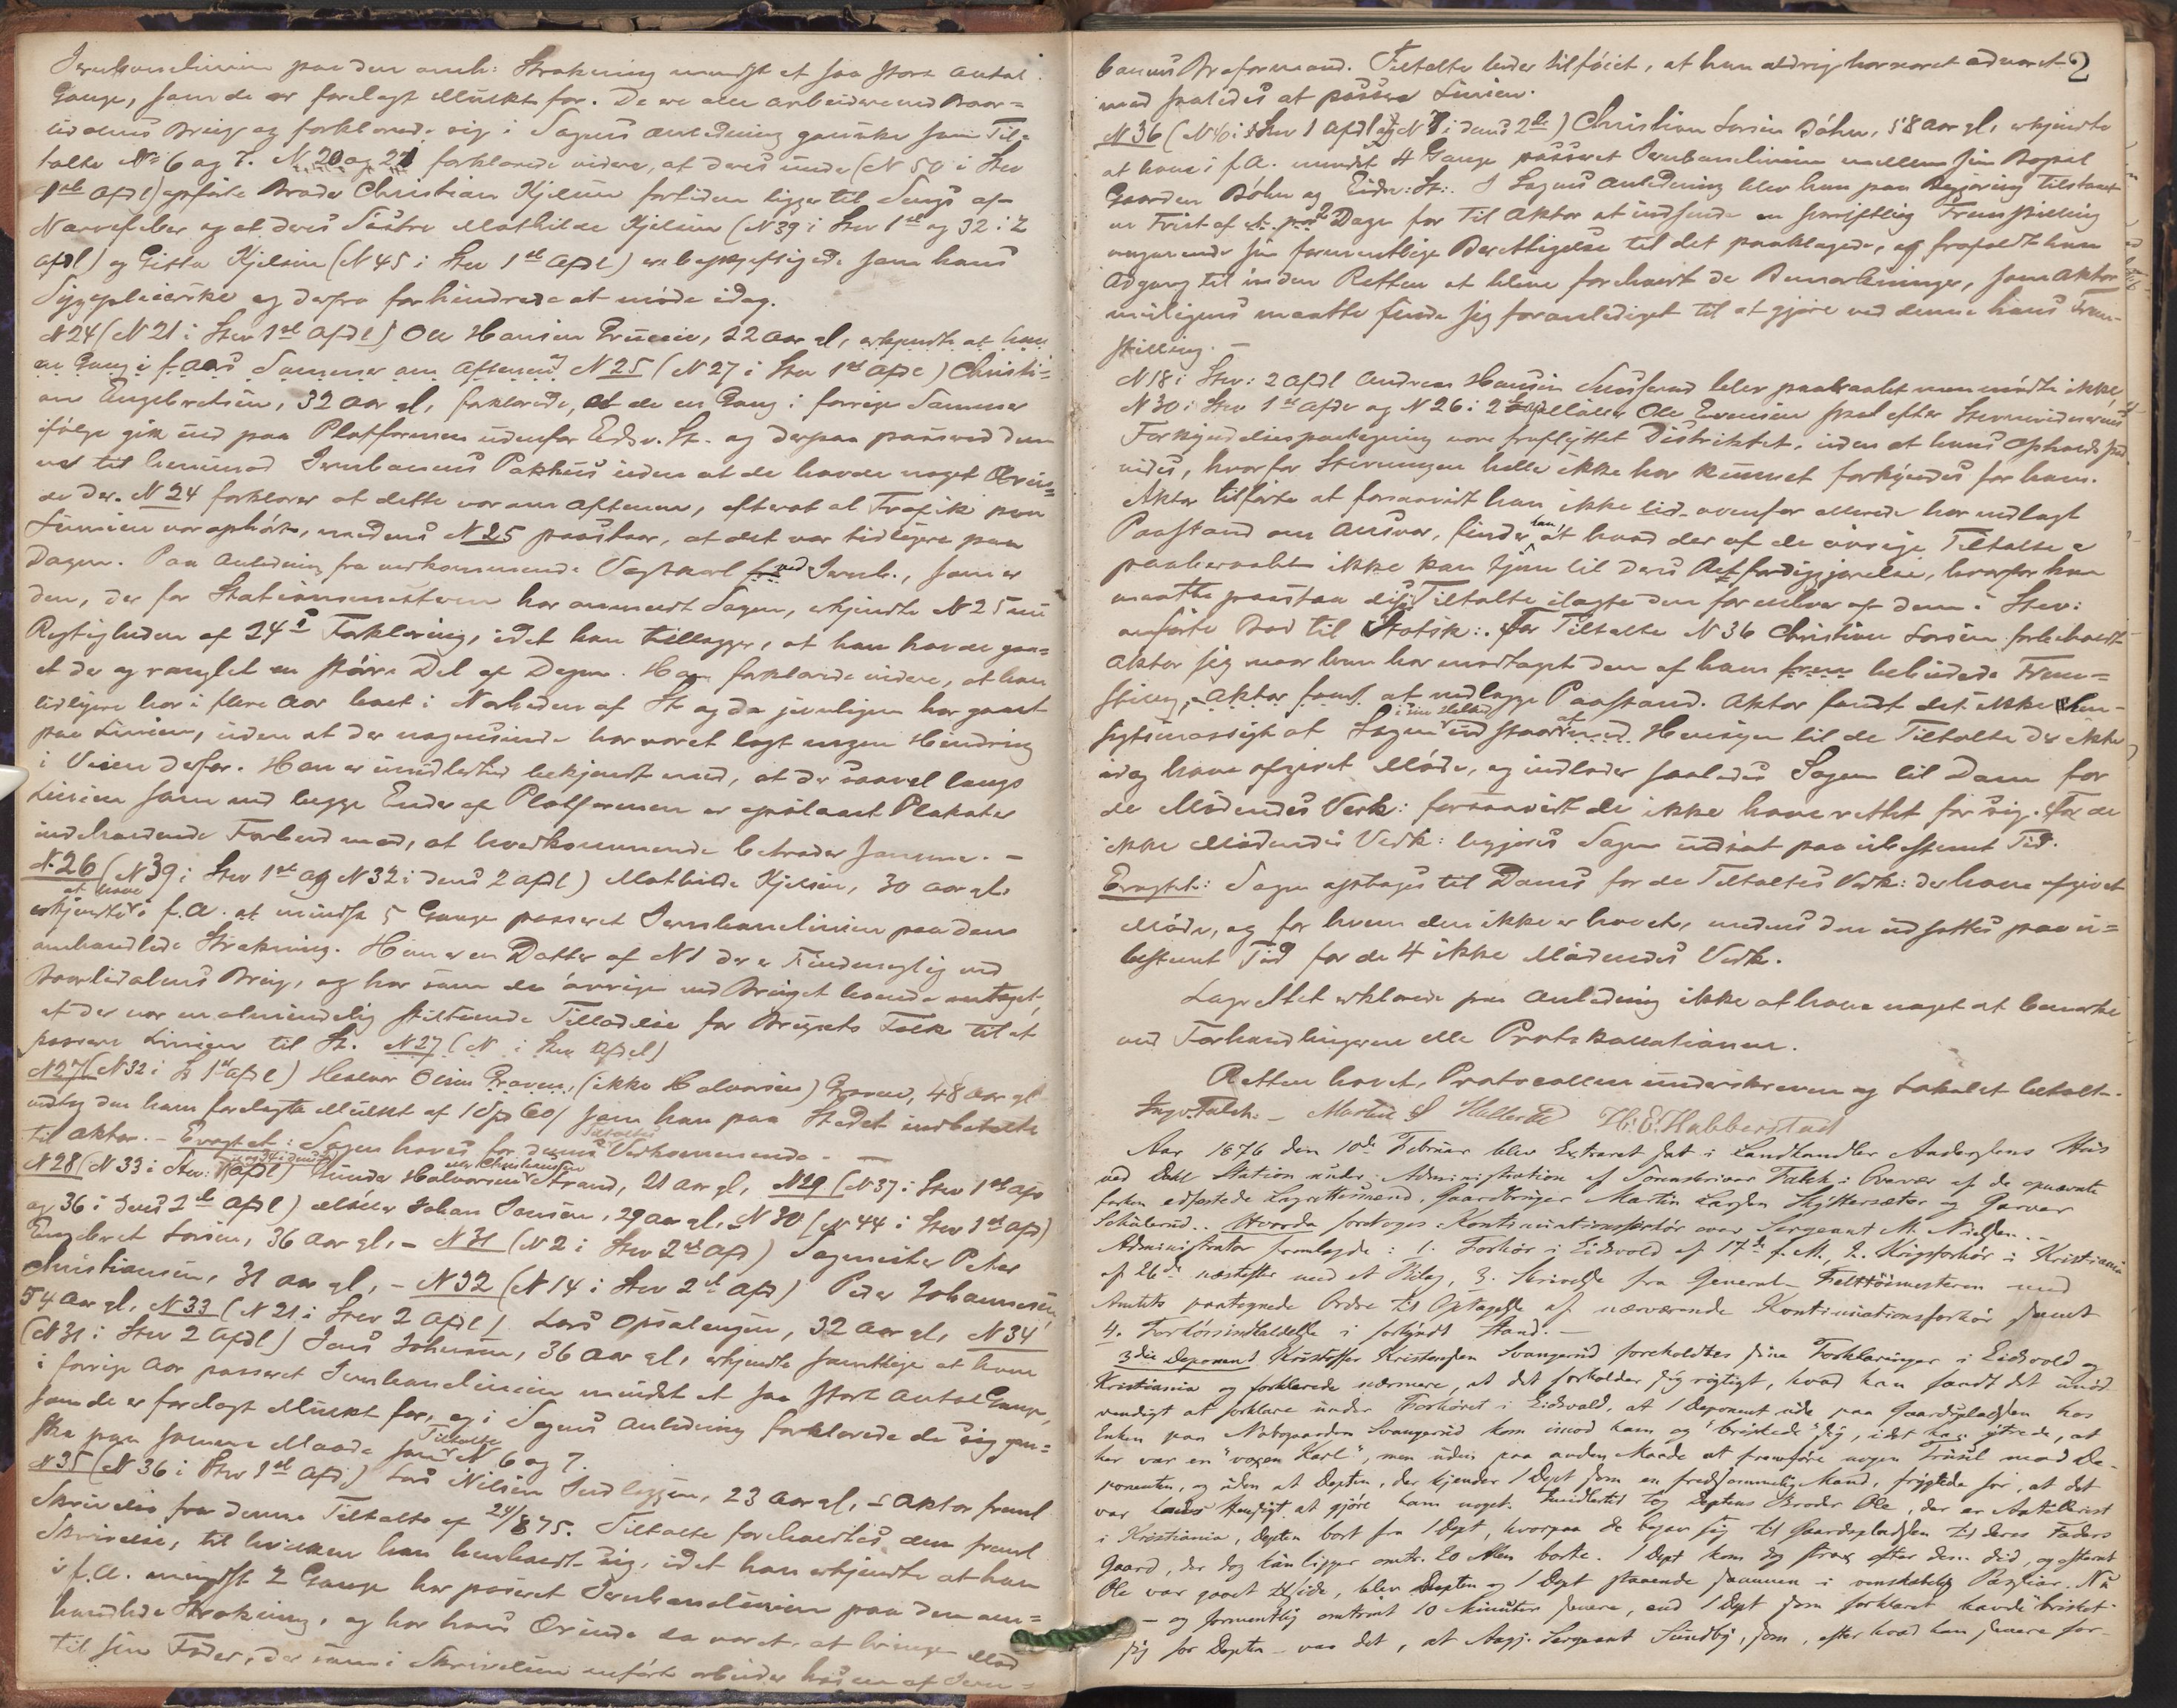 Jernbanelinien paa den omh: Strækning mindst et saa stort Antal
Gange, som de er forelagt Mulkt for. De ere alle Arbeidere ved Baar-
lidalens Brug og forklarede sig i Sagens Anledning ganske som Til-
talte No 6 og 7. N 20 og 21 forklarede videre, at deres under (N 50 i Stev
1ste Afdl) opførte Broder Christian Kjelsen fortiden ligger til Sengs af
Nervefeber og at deres Søstre Mathilde Kjelsen (N 39 i Stev 1ste og 32 i 2
Afdl) og Gitta Kjelsen (N 45 i Stev 1ste Afdl) ere beskjæftigede som hans
Sygepleierske og derfra forhindrede at møde idag.
N 24 (N 21 i Stev 1ste Afdl) Ole Hansen 22 Aar gl, erkjendte at have
en Gang i f. Aars Sommer om Aftenen N 25 (N 27 i Stev 1ste Afdl) Christi-
an Engebretsen, 32 Aar gl, forklarede, at de en Gang i forrige Sommer
ifølge gik ind paa Platformen udenfor Eidsv. St. og derpaa passerede den
ned til henimod Jernbanens Pakhus uden at de havde noget Ærin-
de der. N 24 forklarer at dette var om Aftenen, efterat al Trafik paa
Linien var ophørt, medens N 25 paastaar, at det var tidligere paa
Dagen. Paa Anledning fra vedkommende Vagtkarl ved Jernb., som er
den, der for Stationsmesteren har anmeldt Sagen, erkjendte N 25 nu
Rigtigheden af 24s Forklaring, idet han tillægger, at han havde gaa-
et der og ranglet en større Del af Dagen. Han forklarede videre, at han
tidligere har i flere Aar boet i Nærheden af St og da jevnligen har gaaet
paa Linien, uden at der nogensinde har været lagt nogen Hindring
i Veien derfor. Han er imidlertid bekjendt med, at der saavel langs
Linien som ved begge Ender af Platformen er opslaaet Plakater
indeholdende Forbud mod, at Uvedkommende betræder samme. –
N 26 (N 39 i Stev 1ste og N 32 i dens 2 Afdl) Mathilde Kjelsen, 30 Aar gl.
erkjendte at have i f.A. at mindst 5 Gange passeret Jernbanelinien paa den
omhandlede Strækning. Hun er en Datter af N 1 der er Fuldmægtig ved
Baarlidalens Brug, og har som de øvrige ved Bruget boende antaget,
at der var en almindelig stiltiende Tilladelse for Brugets Folk til at
passere Linien til St. N 27 (N i Stev Afdl)
N 27 (N 32 i St 1ste Afdl) Halvor Olsen Graven, (ikke Halvorsen) Graven, 48 Aar gl
vedtog den ham forelagte Mulkt af 1 Sp 60 / som han paa Stedet indbetalte
til Aktor. – Eragtet: Sagen hæves for denne Tiltaltes Vedkommende. –
N 28 (N 33 i Stev: 1 og 34 i dens 2 Afdl) Gunder Halvorsen eller Christiansen Strand, 21 Aar gl, N 29 (N 37 i Stev 1ste Afd
og 36 i dens 2de Afdl) Møller Johan Jansen, 29 Aar gl, N 30 (N 44 i Stev 1ste Afd)
Engebret Larsen, 36 Aar gl, – N 31 (N 2 i Stev 2de Afd) Sagmester Peter
Christiansen, 31 Aar gl, – N 32 (N 14 i Stev 2de Afd) Peder Johannesen,
54 Aar gl, N 33 (N 21 i Stev 2 Afdl) Lars Opsalengen, 32 Aar gl, N 34
(N 31 i Stev 2 Afdl) Jens Johnsen, 36 Aar gl, erkjendte samtlige at have
i forrige Aar passeret Jernbanelinien mindst et saa stort Antal Gange,
som de er forelagt Mulkt for, og i Sagens Anledning forklarede de sig gan-
ske paa samme Maade som Tiltalte N 6 og 7.
N 35 (N 36 i Stev 1ste Afd.) Lars Nilsen 23 Aar gl, – Aktor freml
Skrivelse fra denne Tiltalte af 24/8 75. Tiltalte foreholdtes den freml
Skrivelse, til hvilken han henholdt sig, idet han erkjendte at han
i f.A. mindst 2 Gange har passeret Jernbanelinien paa den om-
handlede Strækning, og har hans Ærinde da været at bringe Mad
til sin Fader, der som i Skrivelsen anført arbeider hos en af Jern-
2
banens Braformænd. Tiltalte lader tilføiet, at han aldrig har været advaret
mod saaledes at passere Linien.
N 36 (N 40 i Stev 1 Afdl og N 7 i dens 2de) Christian Larsen Bøhn, 58 Aar gl, erkjendte
at have i f.A. mindst 4 Gange passeret Jernbanelinien mellem sin Bopæl
Gaarden Bøhn og Eidsv: St:. I Sagens Anledning blev han paa Begjæring tilstaaet
en Frist af 2 Dage for til Aktor at indsende en skriftlig Fremstilling
angaaende sin formentlige Berettigelse til det paaklagede, og frafaldt han
Adgang til inden Retten at blive foreholdt de Bemærkninger, som Aktor
muligens maatte finde sig foranlediget til at gjøre ved denne hans Frem-
stilling. –
N 18 i Stev: 2 Afdl Andreas Hansen blev paaraabt men mødte ikke,
N 30 i Stev 1ste Afdl og N 26 i 2 Møller Ole Evensen skal efter Stevnevidnernes
Forkyndelsespaategning være fraflyttet Distriktet, uden at hans Ophold
vides, hvorfor Stevningen heller ikke har kunnet forkyndes for ham.
Aktor tilførte at forsaavidt han ikke ovenfor allerede har nedlagt
Paastand om Ansvar, finder han at hvad der af de øvrige Tiltalte er
paaberaabt ikke kan tjene til deres Retfærdiggjørelse, hvorfor han
maatte paastaa disse Tiltalte ilagte den for enhver af dem i Stev:
anførte Bod til Statsk:. For Tiltalte N 36 Christian Larsen forbeholdt
Aktor sig naar han har modtaget den af ham bebudede Frem-
stilling, at nedlægge Paastand. Aktor fandt det ikke hen-
sigtsmæssigt at Sagen i sin Helhed udstaar med Hensyn til de Tiltalte der ikke
idag have afgivet Møde, og indlader saaledes Sagen til Dom for
de Mødendes Vedk: forsaavidt de ikke have rettet for sig. For de
ikke Mødendes Vedk: begjæres Sagen udsat paa ubestemt Tid.
Eragtet: Sagen optages til Doms for de Tiltaltes Vedk: der have afgivet
Møde, og for hvem den ikke er hævet, medens den udsættes paa u-
bestemt Tid for de 4 ikke Mødendes Vedk.
Lagrettet erklærede paa Anledning ikke at have noget at bemærke
ved Forhandlingerne eller Protokollationen.
Retten hævet, Protocollen underskreven og Lokalet betalt.
Ingv. Falch. – Martin L H. E. Habberstad
Aar 1876 den 10de Februar blev Extraret sat i Landhandler Anderssens Hus
ved Dahl Station under Administration af Sorenskriver Falch i Overvær af de opnævnte
forhen edfæstede Lagrettesmænd, Gaardbruger Martin Larsen Skjitersæter og Garver
Schülerud. Hvorda foretoges: Kontinuationsforhør over Sergeant M. Nielsen. –
Administrator fremlagde: 1. Forhør i Eidsvold af 17de f. M., 2. Krigsforhør i Kristiania
af 26de næstefter med et Bilag, 3. Skrivelse fra General-Felttøimesteren med
Amtets paategnede Ordre til Optagelse af nærværende Kontinuationsforhør samt
4. Forhørsindkaldelse i forkyndt Stand. –
3die Deponent Kristoffer Kristensen Svangerud foreholdtes sine Forklaringer i Eidsvold og
Kristiania og forklarede nærmere, at det forholder sig rigtigt, hvad han fandt det unød-
vendigt at forklare under Forhøret i Eidsvold, at 1 Deponent ude paa Gaardspladsen hos
Enken paa Nabogaarden Svangerud kom imod ham og "briskede" sig, idet han ytrede, at
her var en "voxen Karl", men uden paa anden Maade at fremføre nogen Trusel mod De-
ponenten, og uden at Depten, der kjender 1 Dept som en fredsommelig Mand, frygtede for, at det
var hans Hensigt at gjøre ham noget. Imidlertid tog Deptens Broder Ole, der er Artillerist
i Kristiania, Depten bort fra 1 Dept, hvorpaa de begav sig til Gaardspladsen til deres Faders
Gaard, der dog kun ligger omtr. 20 Alen borte. 1 Dept kom dog strax efter dem did, og efterat
Ole var gaaet tilside, blev Depten og 1 Dept staaende sammen i venskabelig Passiar. Nu
– og formentlig omtrent 10 Minuter senere, end 1 Dept som forklaret havde "brisket"
sig for Depten – var det, at Aagj. Sergeant Sundby, som, efter hvad han senere for-